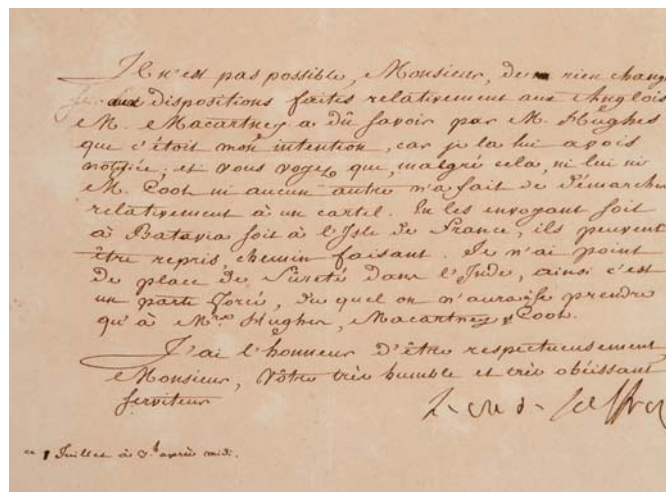 Il n'est pas possible, Monsieur, de rien chang
aux dispositions faites relativement aux Anglois
M. Macartney a dû savoir par M. Hughes
que c'étoit mon intention, car je la lui avois
notifiée; et vous voyez que, malgré cela, ni lui ni
M. Coot ni aucun autre n'a fait de démarche
relativement à un cartel. En les envoyant soit
à Batavia soit à l'Isle de France, ils peuvent
être repris, chemin faisant. Je n'ai point
de place de sûreté dans l'Inde, ainsi c'est
un parti forcé, du quel on n'aura se prendre
qu'à Mrs Hughes, Macartney & Coot.
J'ai l'honneur d'être respectueusement
Monsieur, Vôtre très humble et très obéissant
serviteur
ce 1 Juillet à 3.h après midi.